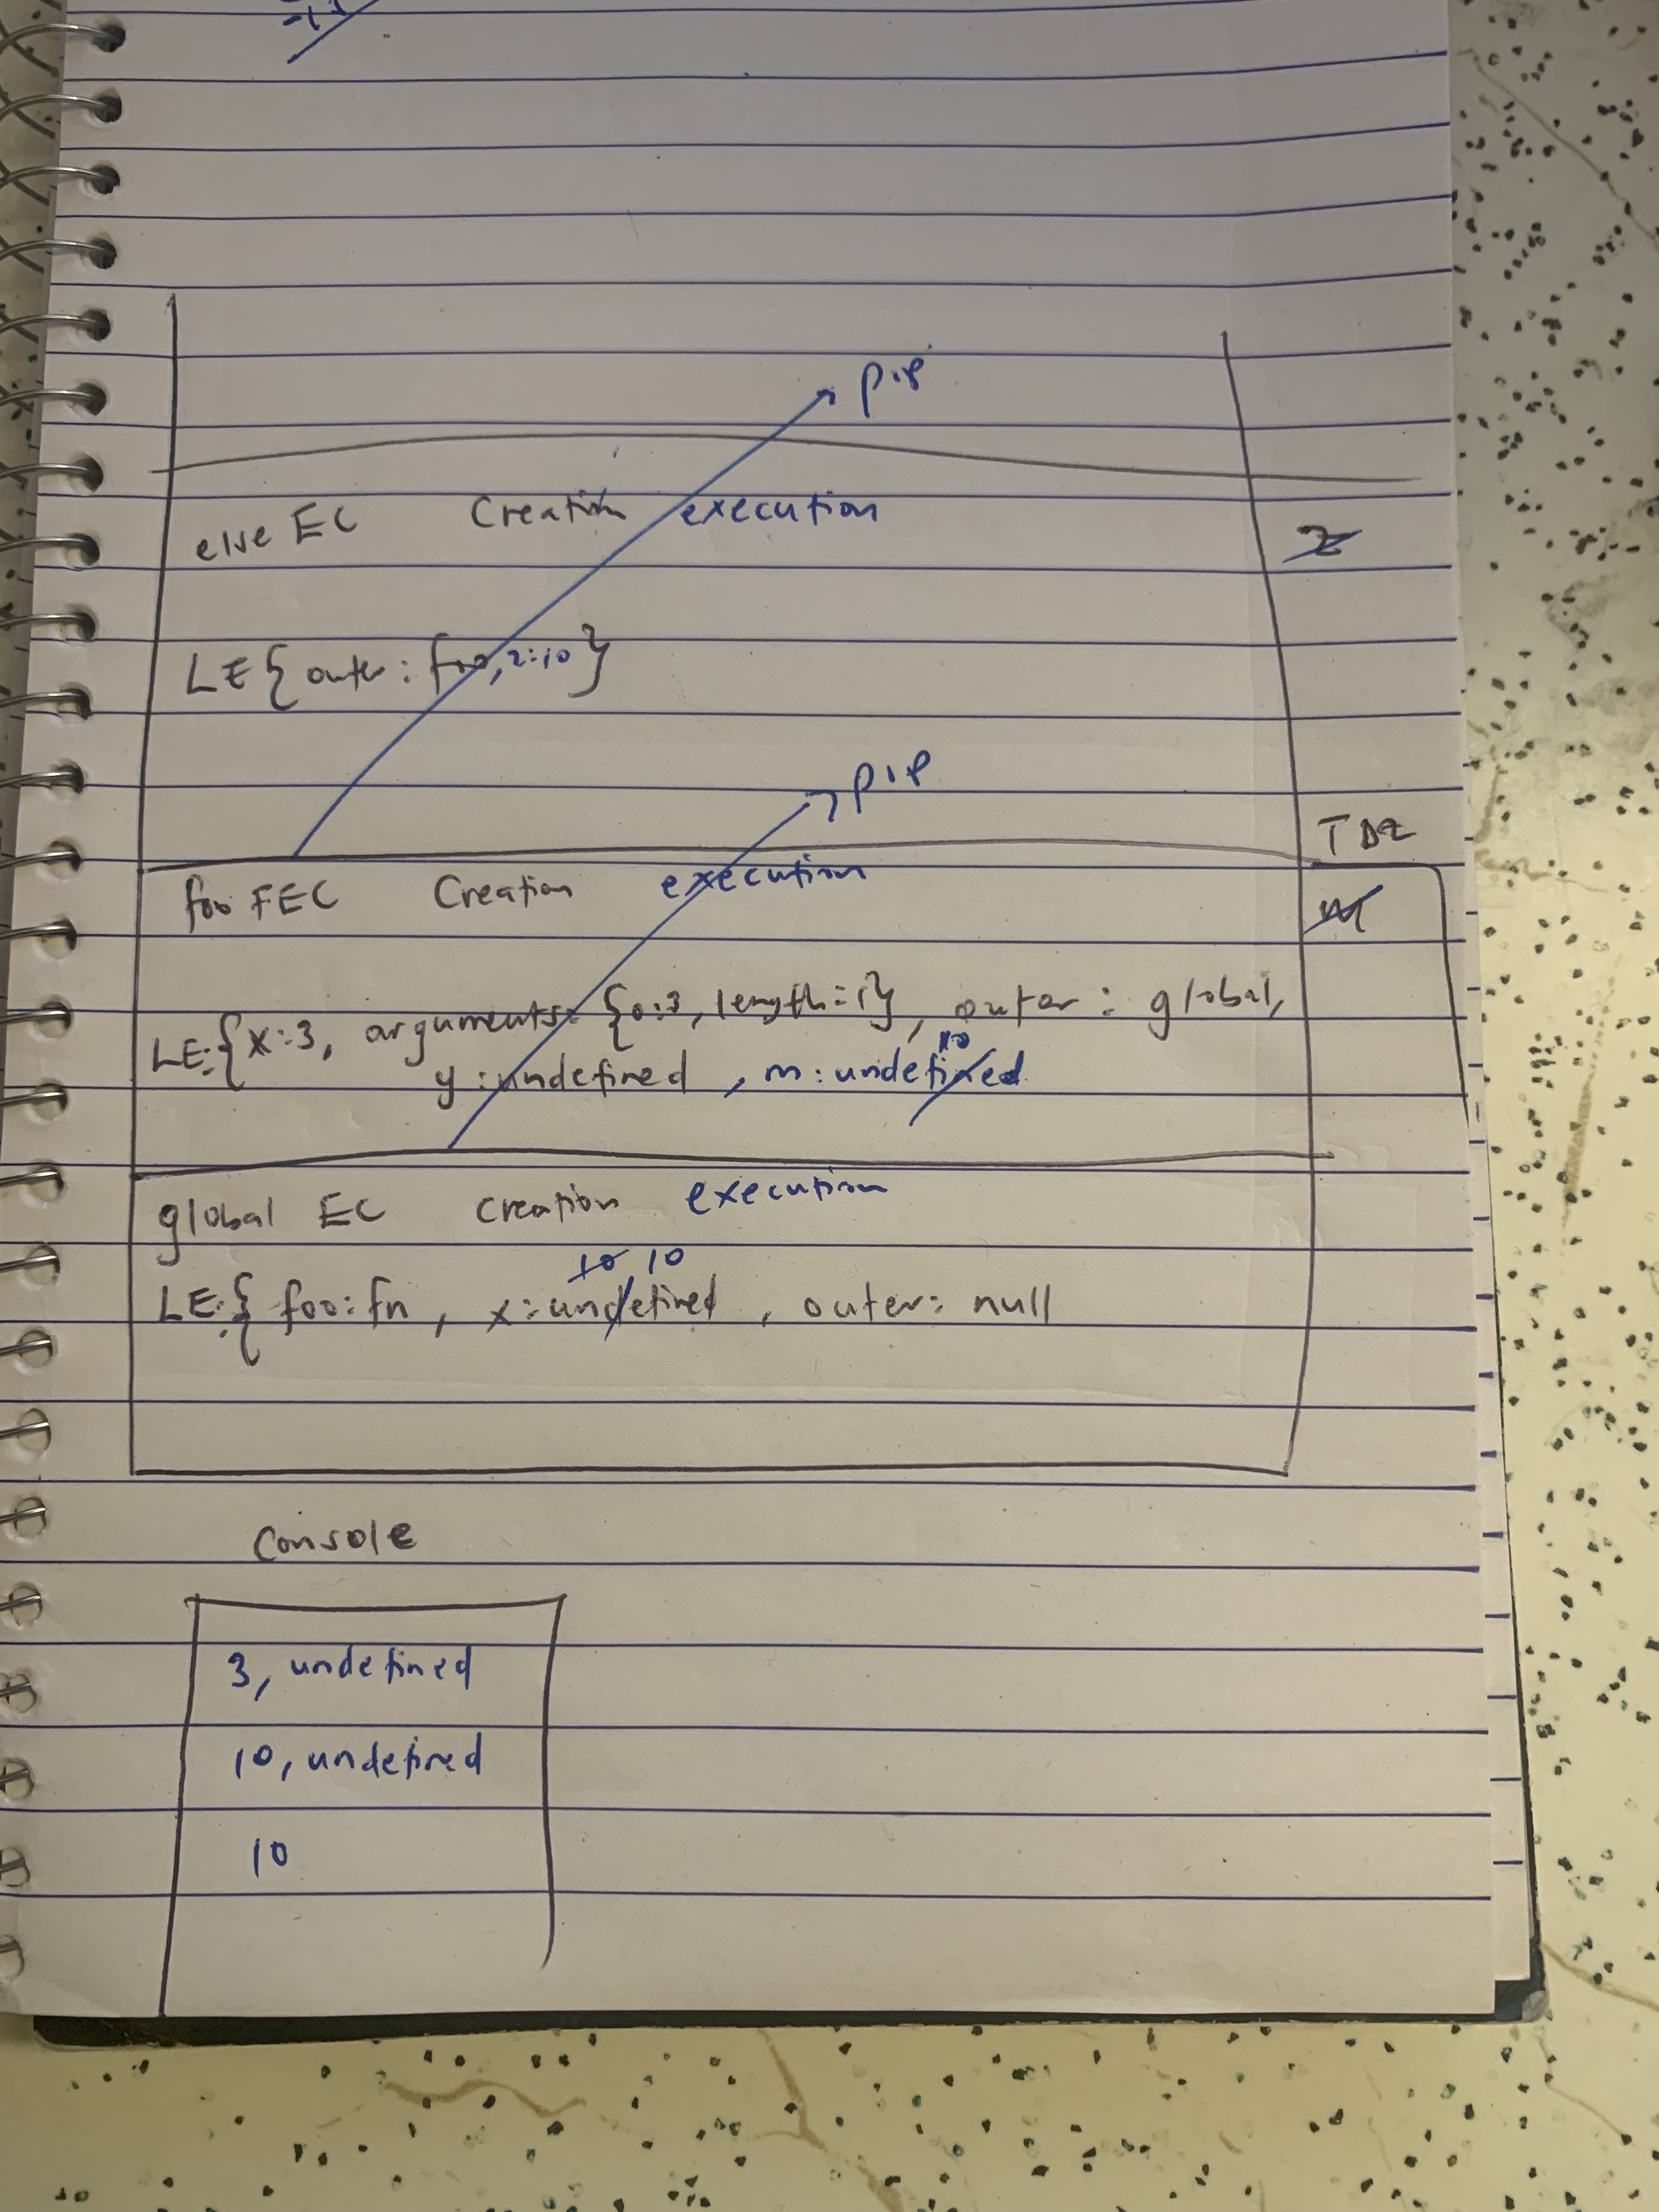 else EC Creation execution
z
LE{ outer : foo, z:10 }
TDZ
foo FEC Creation execution
m
LE:{x:3, arguments: {0:3, length:1}, outer : global,
10
y : undefined , m: undefined
global EC creation execution
10 10
LE:{ foo: fn , x: undefined , outer: null
Console
3, undefined
10, undefined
10